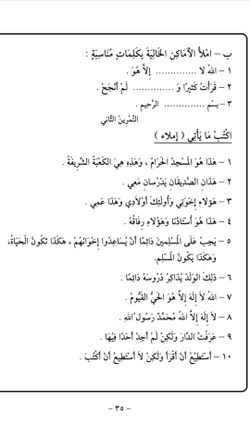 ب - امْلأ الأَمَاكِنَ الخَالِيَةَ بِكَلِمَاتٍ مُنَاسِبَةٍ :
١ - اللهُ لا .............. إِلاَّ هُوَ .
٢ - قَرَأْتُ كَثِيرًا وَ .............. لَمْ أَنْجَحْ .
٣ - بِسْمِ .............. الرَّحِيمِ .
التَّمْرِينُ الثَّانِي
اكْتُبْ مَا يَأْتِي ( إملاء )
١ - هَذَا هُوَ المَسْجِدُ الحَرَامُ ، وَهَذِهِ هِيَ الكَعْبَةُ الشَّرِيفَةُ .
٢ - هَذَانِ الصَّدِيقَانِ يَدْرُسَانِ مَعِي .
٣ - هَؤُلاَءِ إِخْوَتِي وَأُولَئِكَ أَوْلاَدِي وَهَذَا عَمِّي .
٤ - هَذَا هُوَ أُسْتَاذُنَا وَهَؤُلاَءِ رِفَاقُهُ .
٥ - يَجِبُ عَلَى المُسْلِمِينَ دَائِمًا أَنْ يُسَاعِدُوا إِخْوَانَهُمْ ، هَكَذَا تَكُونُ الحَيَاةُ،
وَهَكَذَا يَكُونُ المُسْلِمُ.
٦ - ذَلِكَ الوَلَدُ يُذَاكِرُ دُرُوسَهُ دَائِمًا .
٧ - اللهُ لاَ إِلَهَ إِلاَّ هُوَ الحَيُّ القَيُّومُ .
٨ - لاَ إِلَهَ إِلاَّ اللهُ مُحَمَّدٌ رَسُولُ اللهِ .
٩ - عَرَفْتُ الدَّارَ وَلَكِنْ لَمْ أَجِدْ أَحَدًا فِيهَا .
١٠ - أَسْتَطِيعُ أَنْ أَقْرَأَ وَلَكِنْ لاَ أَسْتَطِيعُ أَنْ أَكْتُبَ .
- ٣٥ -